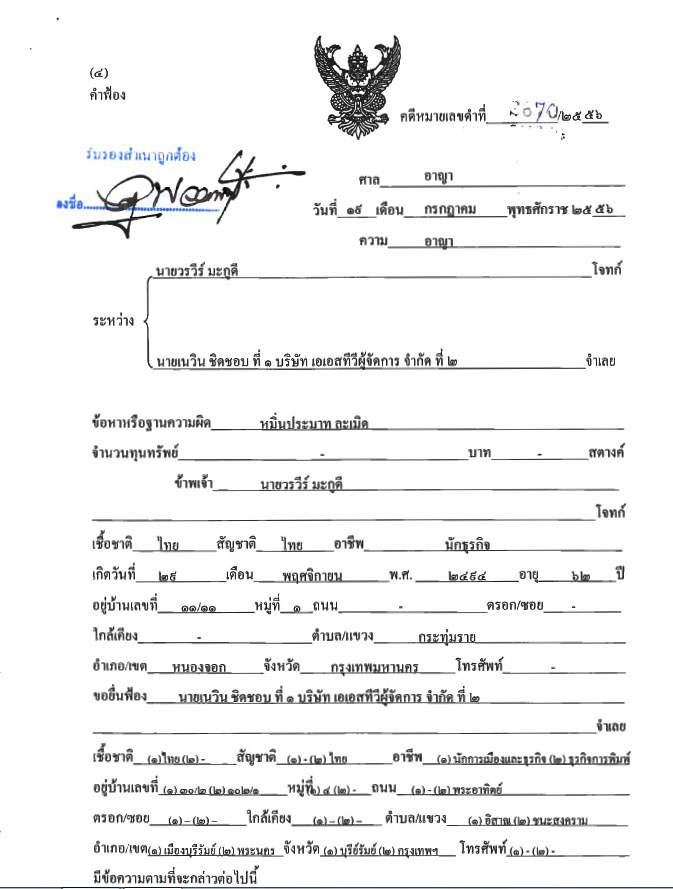 (๔)
คำฟ้อง
คดีหมายเลขดำที่ 2070/๒๕๕๖
รับรองสำเนาถูกต้อง
ลงชื่อ
ศาล อาญา
วันที่ ๑๙ เดือน กรกฎาคม พุทธศักราช ๒๕๕๖
ความ อาญา
นายวรวีร์ มะกูดี โจทก์
ระหว่าง
นายเนวิน ชิดชอบ ที่ ๑ บริษัท เอเอสทีวีผู้จัดการ จำกัด ที่ ๒ จำเลย
ข้อหาหรือฐานความผิด หมิ่นประมาท ละเมิด
จำนวนทุนทรัพย์ - บาท - สตางค์
ข้าพเจ้า นายวรวีร์ มะกูดี
โจทก์
เชื้อชาติ ไทย สัญชาติ ไทย อาชีพ นักธุรกิจ
เกิดวันที่ ๒๙ เดือน พฤศจิกายน พ.ศ. ๒๔๙๔ อายุ ๖๒ ปี
อยู่บ้านเลขที่ ๑๑/๑๑ หมู่ที่ ๑ ถนน - ตรอก/ซอย -
ใกล้เคียง - ตำบล/แขวง กระทุ่มราย
อำเภอ/เขต หนองจอก จังหวัด กรุงเทพมหานคร โทรศัพท์ -
ขอยื่นฟ้อง นายเนวิน ชิดชอบ ที่ ๑ บริษัท เอเอสทีวีผู้จัดการ จำกัด ที่ ๒
จำเลย
เชื้อชาติ (๑)ไทย (๒) - สัญชาติ (๑) - (๒) ไทย อาชีพ (๑) นักการเมืองและธุรกิจ (๒) ธุรกิจการพิมพ์
อยู่บ้านเลขที่ (๑) ๓๐/๒ (๒) ๑๐๒/๑ หมู่ที่ ๔ (๒) - ถนน (๑) - (๒) พระอาทิตย์
ตรอก/ซอย (๑) – (๒) – ใกล้เคียง (๑) – (๒) – ตำบล/แขวง (๑) อิสาณ (๒) ชนะสงคราม
อำเภอ/เขต (๑) เมืองบุรีรัมย์ (๒) พระนคร จังหวัด (๑) บุรีย์รัมย์ (๒) กรุงเทพฯ โทรศัพท์ (๑) - (๒) -
มีข้อความตามที่จะกล่าวต่อไปนี้